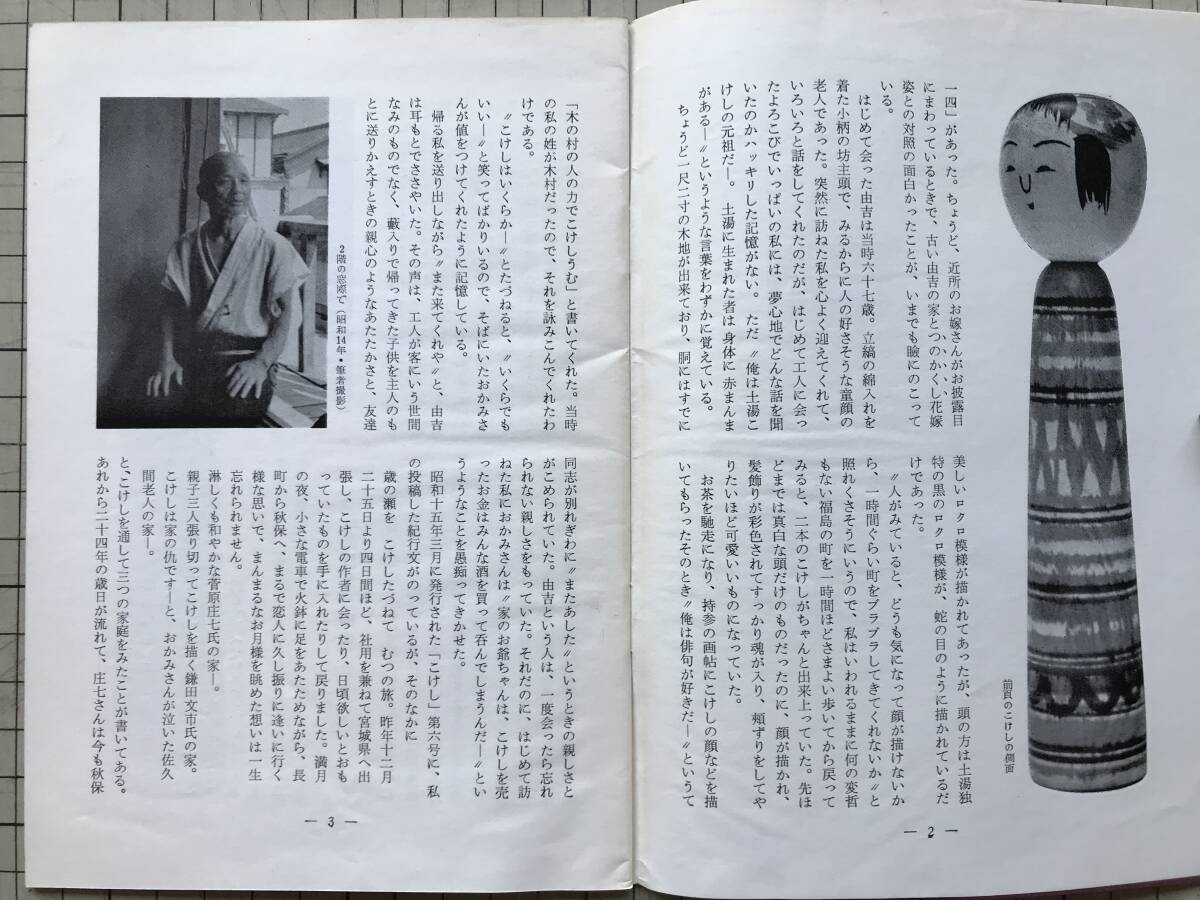 一四」があった。ちょうど、近所のお嫁さんがお披露目
にまわっているときで、古い由吉の家とつのかくし花嫁
姿との対照の面白かったことが、いまでも瞼にのこって
いる。
はじめて会った由吉は当時六十七歳。立縞の綿入れを
着た小柄の坊主頭で、みるからに人の好さそうな童顔の
老人であった。突然に訪ねた私を心よく迎えてくれて、
いろいろと話をしてくれたのだが、はじめて工人に会っ
たよろこびでいっぱいの私には、夢心地でどんな話を聞
いたのかハッキリした記憶がない。ただ〝俺は土湯こ
けしの元祖だー。土湯に生まれた者は身体に赤まんま
がある―〟というような言葉をわずかに覚えている。
ちょうど一尺二寸の木地が出来ており、胴にはすでに
美しいロクロ模様が描かれてあったが、頭の方は土湯独
特の黒のロクロ模様が、蛇の目のように描かれているだ
けであった。
〝人がみていると、どうも気になって顔が描けないか
ら、一時間ぐらい町をブラブラしてきてくれないか〟と
照れくさそうにいうので、私はいわれるままに何の変哲
もない福島の町を一時間ほどさまよい歩いてから戻って
みると、二本のこけしがちゃんと出来上っていた。先ほ
どまでは真白な頭だけのものだったのに、顔が描かれ、
髪飾りが彩色されてすっかり魂が入り、頰ずりをしてや
りたいほど可愛いいものになっていた。
お茶を馳走になり、持参の画帖にこけしの顔などを描
いてもらったそのとき〝俺は俳句が好きだ―〟というて
前頁のこけしの側面
― 2 ―
「木の村の人の力でこけしうむ」と書いてくれた。当時
の私の姓が木村だったので、それを詠みこんでくれたわ
けである。
〝こけしはいくらか―〟とたづねると、〝いくらでも
いい―〟と笑ってばかりいるので、そばにいたおかみさ
んが値をつけてくれたように記憶している。
帰る私を送り出しながら〝また来てくれや〟と、由吉
は耳もとでささやいた。その声は、工人が客にいう世間
なみのものでなく、藪入りで帰ってきた子供を主人のも
とに送りかえすときの親心のようなあたたかさと、友達
2階の窓際で(昭和14年・筆者撮影)
同志が別れぎわに〝またあした〟というときの親しさと
がこめられていた。由吉という人は、一度会ったら忘れ
られない親しさをもっていた。それだのに、はじめて訪
ねた私におかみさんは〝家のお爺ちゃんは、こけしを売
ったお金はみんな酒を買って呑んでしまうんだ―〟とい
うようなことを愚痴ってきかせた。
昭和十五年三月に発行された「こけし」第六号に、私
の投稿した紀行文がのっているが、そのなかに
歳の瀬を　こけしたづねて　むつの旅。昨年十二月
二十五日より四日間ほど、社用を兼ねて宮城県へ出
張し、こけしの作者に会ったり、日頃欲しいとおも
っていたものを手に入れたりして戻りました。満月
の夜、小さな電車で火鉢に足をあたためながら、長
町から秋保へ、まるで恋人に久し振りに逢いに行く
様な思いで、まんまるなお月様を眺めた想いは一生
忘れられません。
淋しくも和やかな菅原庄七氏の家―。
親子三人張り切ってこけしを描く鎌田文市氏の家。
こけしは家の仇です―と、おかみさんが泣いた佐久
間老人の家―。
と、こけしを通して三つの家庭をみたことが書いてある。
あれから二十四年の歳日が流れて、庄七さんは今も秋保
― 3 ―